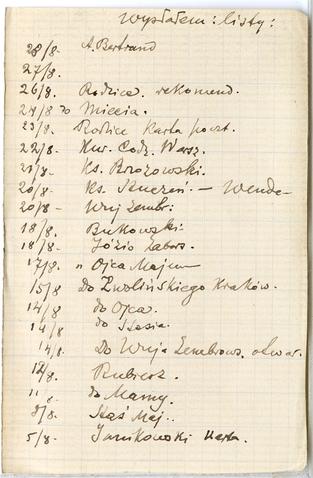 wysłałem: listy:
28/8- A. Bertrand
27/8.
26/8. Rodzice. rekomend.
24/8 do Miecia.
23/8. Rodzice Karta poczt.
22/8- Kur. Codz. Warsz.
21/8- Ks. Brozowski.
20/8- Ks. - Wende-
20/8- Wuj Zembr:
18/8. Butkowski:
18/8- Józio Zabor.
17/8. " Ojca
15/8 do Zwolińskiego Kraków.
14/8 do Ojca.
14/8 do Stasia.
14/8- do Wuja Zembrows. otwar.
12/8. Rubierz.
11/8 do Mamy.
8/8- Staś Maj..
5/8- Janikowski Karta.